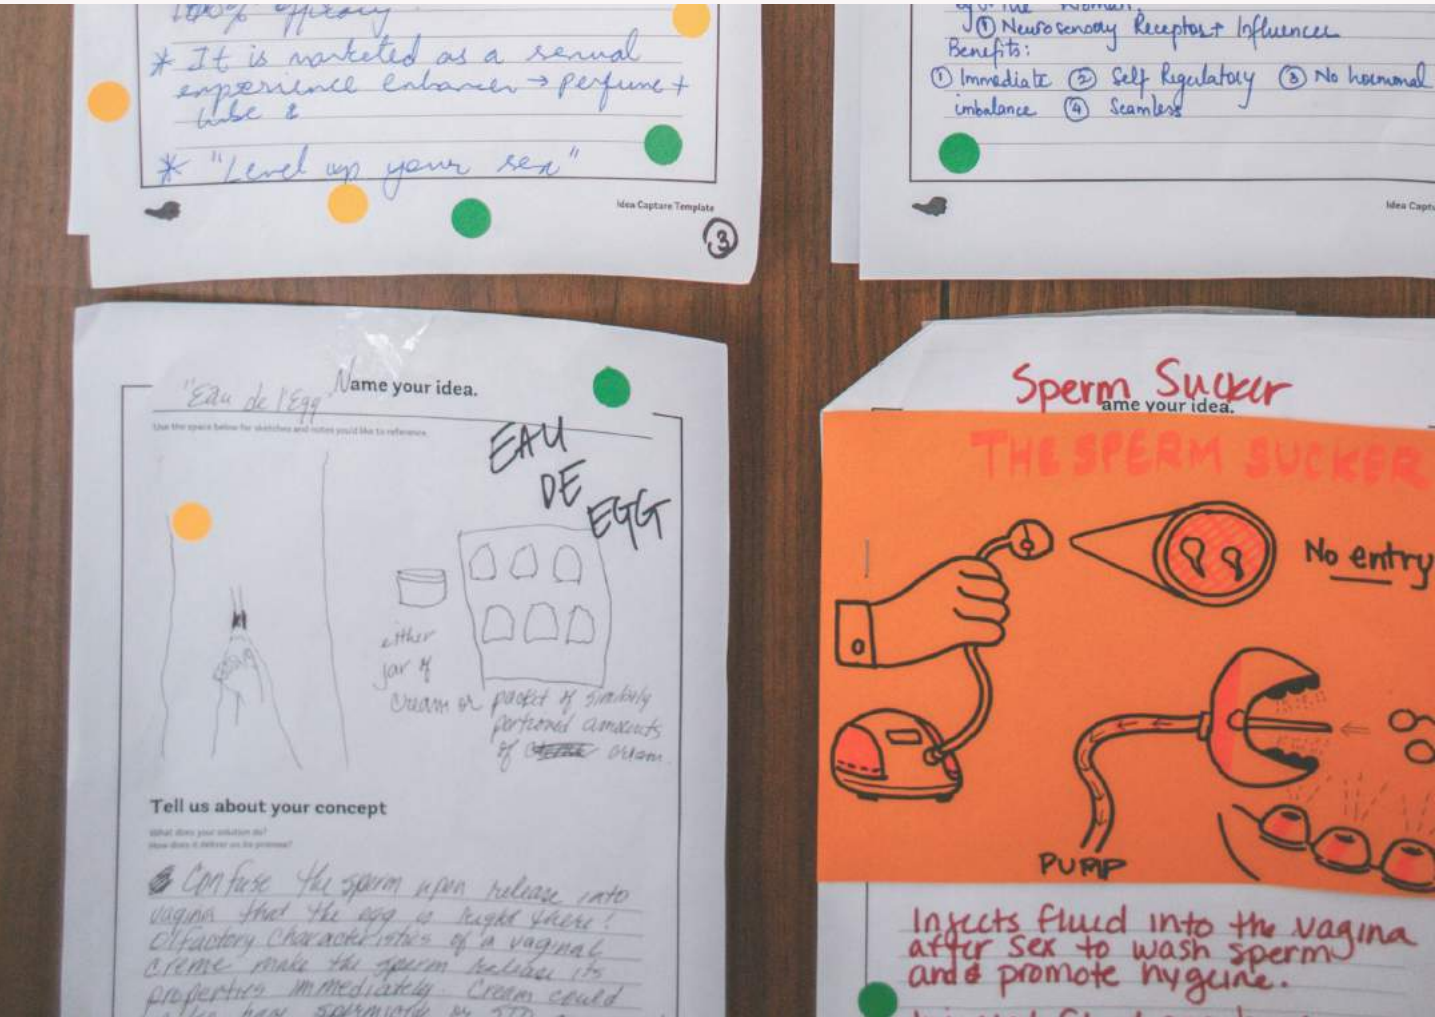 100% efficacy
* It is marketed as a sexual
experience enhancer → perfume +
lube &
* "Level up your sex"
Idea Capture Template
3
egg the woman.
① Neurosensory Receptor + Influencer
Benefits:
① Immediate ② Self Regulatory ③ No hormonal
imbalance ④ Seamless
Idea Captu
"Eau de l'Egg"
Name your idea.
Use the space below for sketches and notes you'd like to reference.
EAU
DE
EGG
either
jar of
cream or packet of similarly
portioned amounts
of cream.
Tell us about your concept
What does your solution do?
How does it deliver on its promise?
Confuse the sperm upon release into
vagina that the egg is right there!
Olfactory characteristics of a vaginal
creme make the sperm release its
properties immediately. Cream could
have spermicide or STD
Sperm Sucker
ame your idea.
THE SPERM SUCKER
No entry
PUMP
Injects fluid into the vagina
after sex to wash sperm
and promote hygiene.